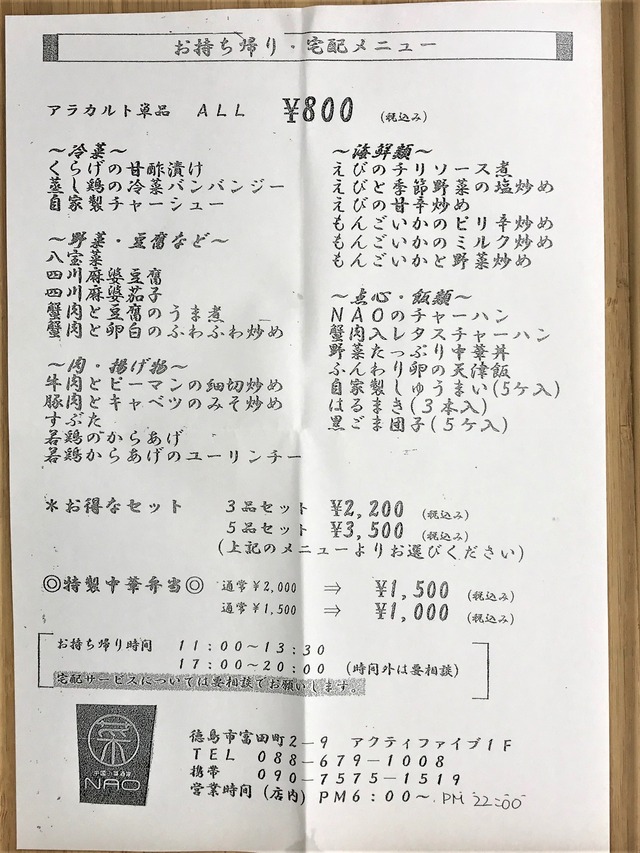 お持ち帰り・宅配メニュー
アラカルト単品 ALL ¥800 (税込み)
～冷菜～
くらげの甘酢漬け
蒸し鶏の冷菜バンバンジー
自家製チャーシュー
～野菜・豆腐など～
八宝菜
四川麻婆豆腐
四川麻婆茄子
蟹肉と豆腐のうま煮
蟹肉と卵白のふわふわ炒め
～肉・揚げ物～
牛肉とピーマンの細切炒め
豚肉とキャベツのみそ炒め
すぶた
若鶏のからあげ
若鶏からあげのユーリンチー
～海鮮類～
えびのチリソース煮
えびと季節野菜の塩炒め
えびの甘辛炒め
もんごいかのピリ辛炒め
もんごいかのミルク炒め
もんごいかと野菜炒め
～点心・飯類～
NAOのチャーハン
蟹肉入レタスチャーハン
野菜たっぷり中華丼
ふんわり卵の天津飯
自家製しゅうまい(5ケ入)
はるまき(3本入)
黒ごま団子(5ケ入)
＊お得なセット 3品セット ¥2,200 (税込み)
5品セット ¥3,500 (税込み)
(上記のメニューよりお選びください)
◎特製中華弁当◎ 通常¥2,000 ⇒ ¥1,500 (税込み)
通常¥1,500 ⇒ ¥1,000 (税込み)
お持ち帰り時間 11:00～13:30
17:00～20:00 (時間外は要相談)
宅配サービスについては要相談でお願いします。
NAO
徳島市富田町2-9 アクティファイブ1F
TEL 088-679-1008
携帯 090-7575-1519
営業時間(店内)PM6:00～ PM 22:00